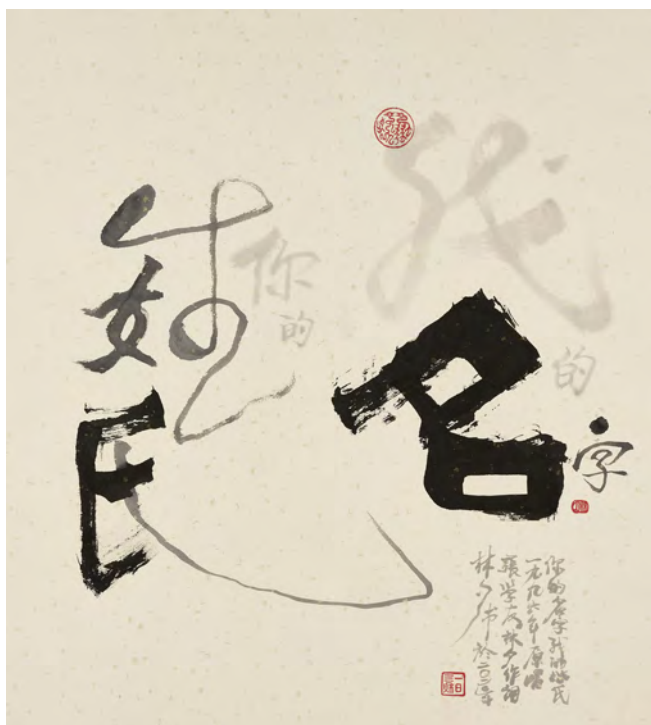 我的
名字
你的
姓氏
你的名字我的姓氏
一九九六年原唱
張學友林夕作詞
林夕